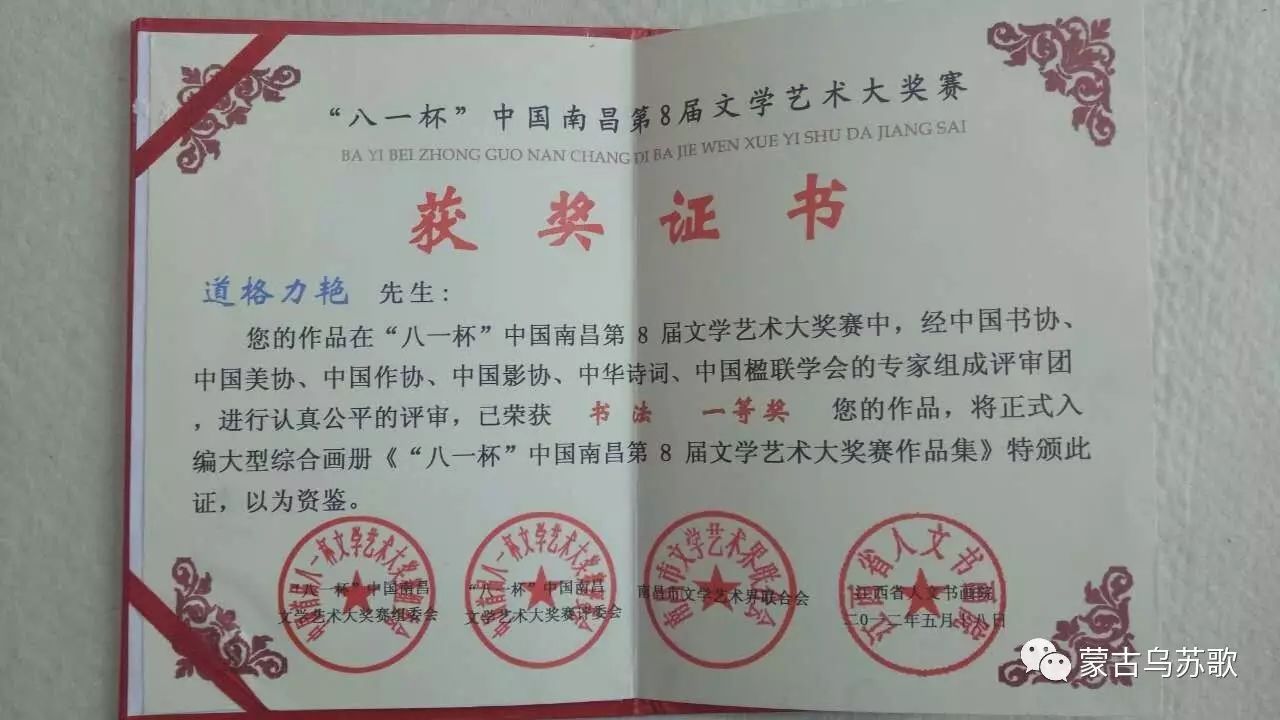 “八一杯”中国南昌第8届文学艺术大奖赛
BA YI BEI ZHONG GUO NAN CHANG DI BA JIE WEN XUE YI SHU DA JIANG SAI
获奖证书
道格力艳 先生：
您的作品在“八一杯”中国南昌第 8 届文学艺术大奖赛中，经中国书协、
中国美协、中国作协、中国影协、中华诗词、中国楹联学会的专家组成评审团
，进行认真公平的评审，已荣获 书法 一等奖 您的作品，将正式入
编大型综合画册《“八一杯”中国南昌第 8 届文学艺术大奖赛作品集》特颁此
证，以为资鉴。
“八一杯”中国南昌
文学艺术大奖赛组委会
“八一杯”中国南昌
文学艺术大奖赛评委会
南昌市文学艺术界联合会
江西省人文书画院
二0一二年五月十八日
南昌市文学艺术界联合会
江西省人文书画院
蒙古乌苏歌